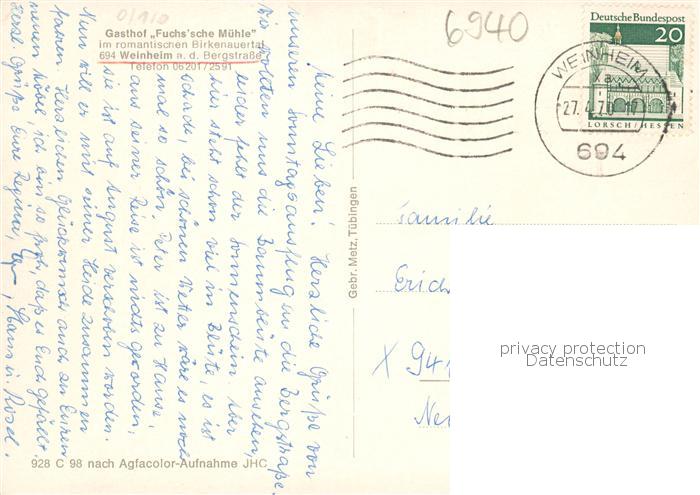 0/110
6940
Gasthof „Fuchs'sche Mühle"
im romantischen Birkenauertal
694 Weinheim a. d. Bergstraße
Telefon 06201/2591
Deutsche Bundespost
20
LORSCH/HESSEN
WEINHEIM
27.4.70-17
694
Meine Lieben! Herzliche Grüße von
unserem Sonntagsausflug an die Bergstraße.
Wir wollten uns die Baumblüte ansehen,
leider fehlt der Sonnenschein. Aber
hier steht schon viel in Blüte, es ist
schade, bei schönem Wetter wäre es noch
mal so schön. Peter ist zu Hause,
aus seiner Reise ist nichts geworden,
sie ist auf August verschoben worden.
Nun will er mit seiner Heide zusammen
fahren. Herzlichen Glückwunsch auch zu Euren
neuen Möbel, ich bin so froh, daß es Euch gefällt.
Viele Grüße Eure Regina,
Gebr. Metz, Tübingen
Familie
Erich
X 941
Neu
privacy protection
Datenschutz
928 C 98 nach Agfacolor-Aufnahme JHC